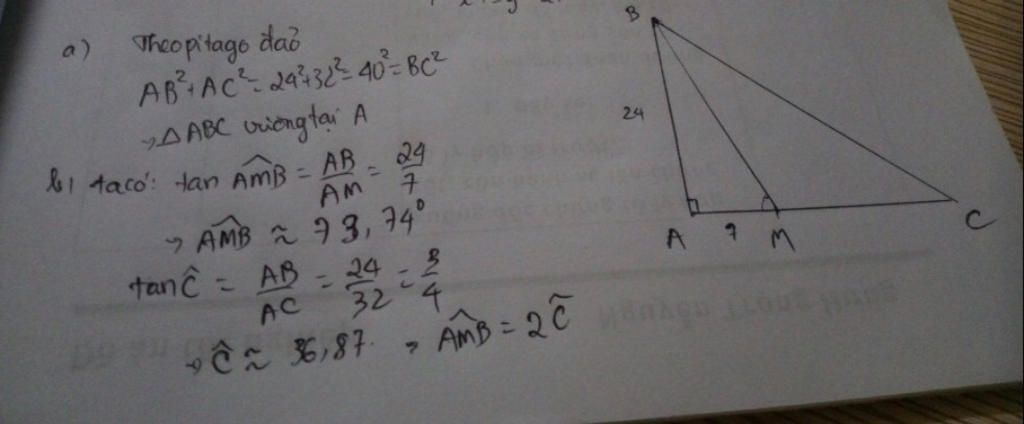 a) Theo pitago đảo
AB²+AC²=24²+32²=40²=BC²
→ △ABC vuông tại A
b) ta có: tan AM̂B = AB/AM = 24/7
→ AM̂B ≈ 73,74°
tan Ĉ = AB/AC = 24/32 = 3/4
→ Ĉ ≈ 36,87. → AM̂B = 2Ĉ
B
24
A 7 M C